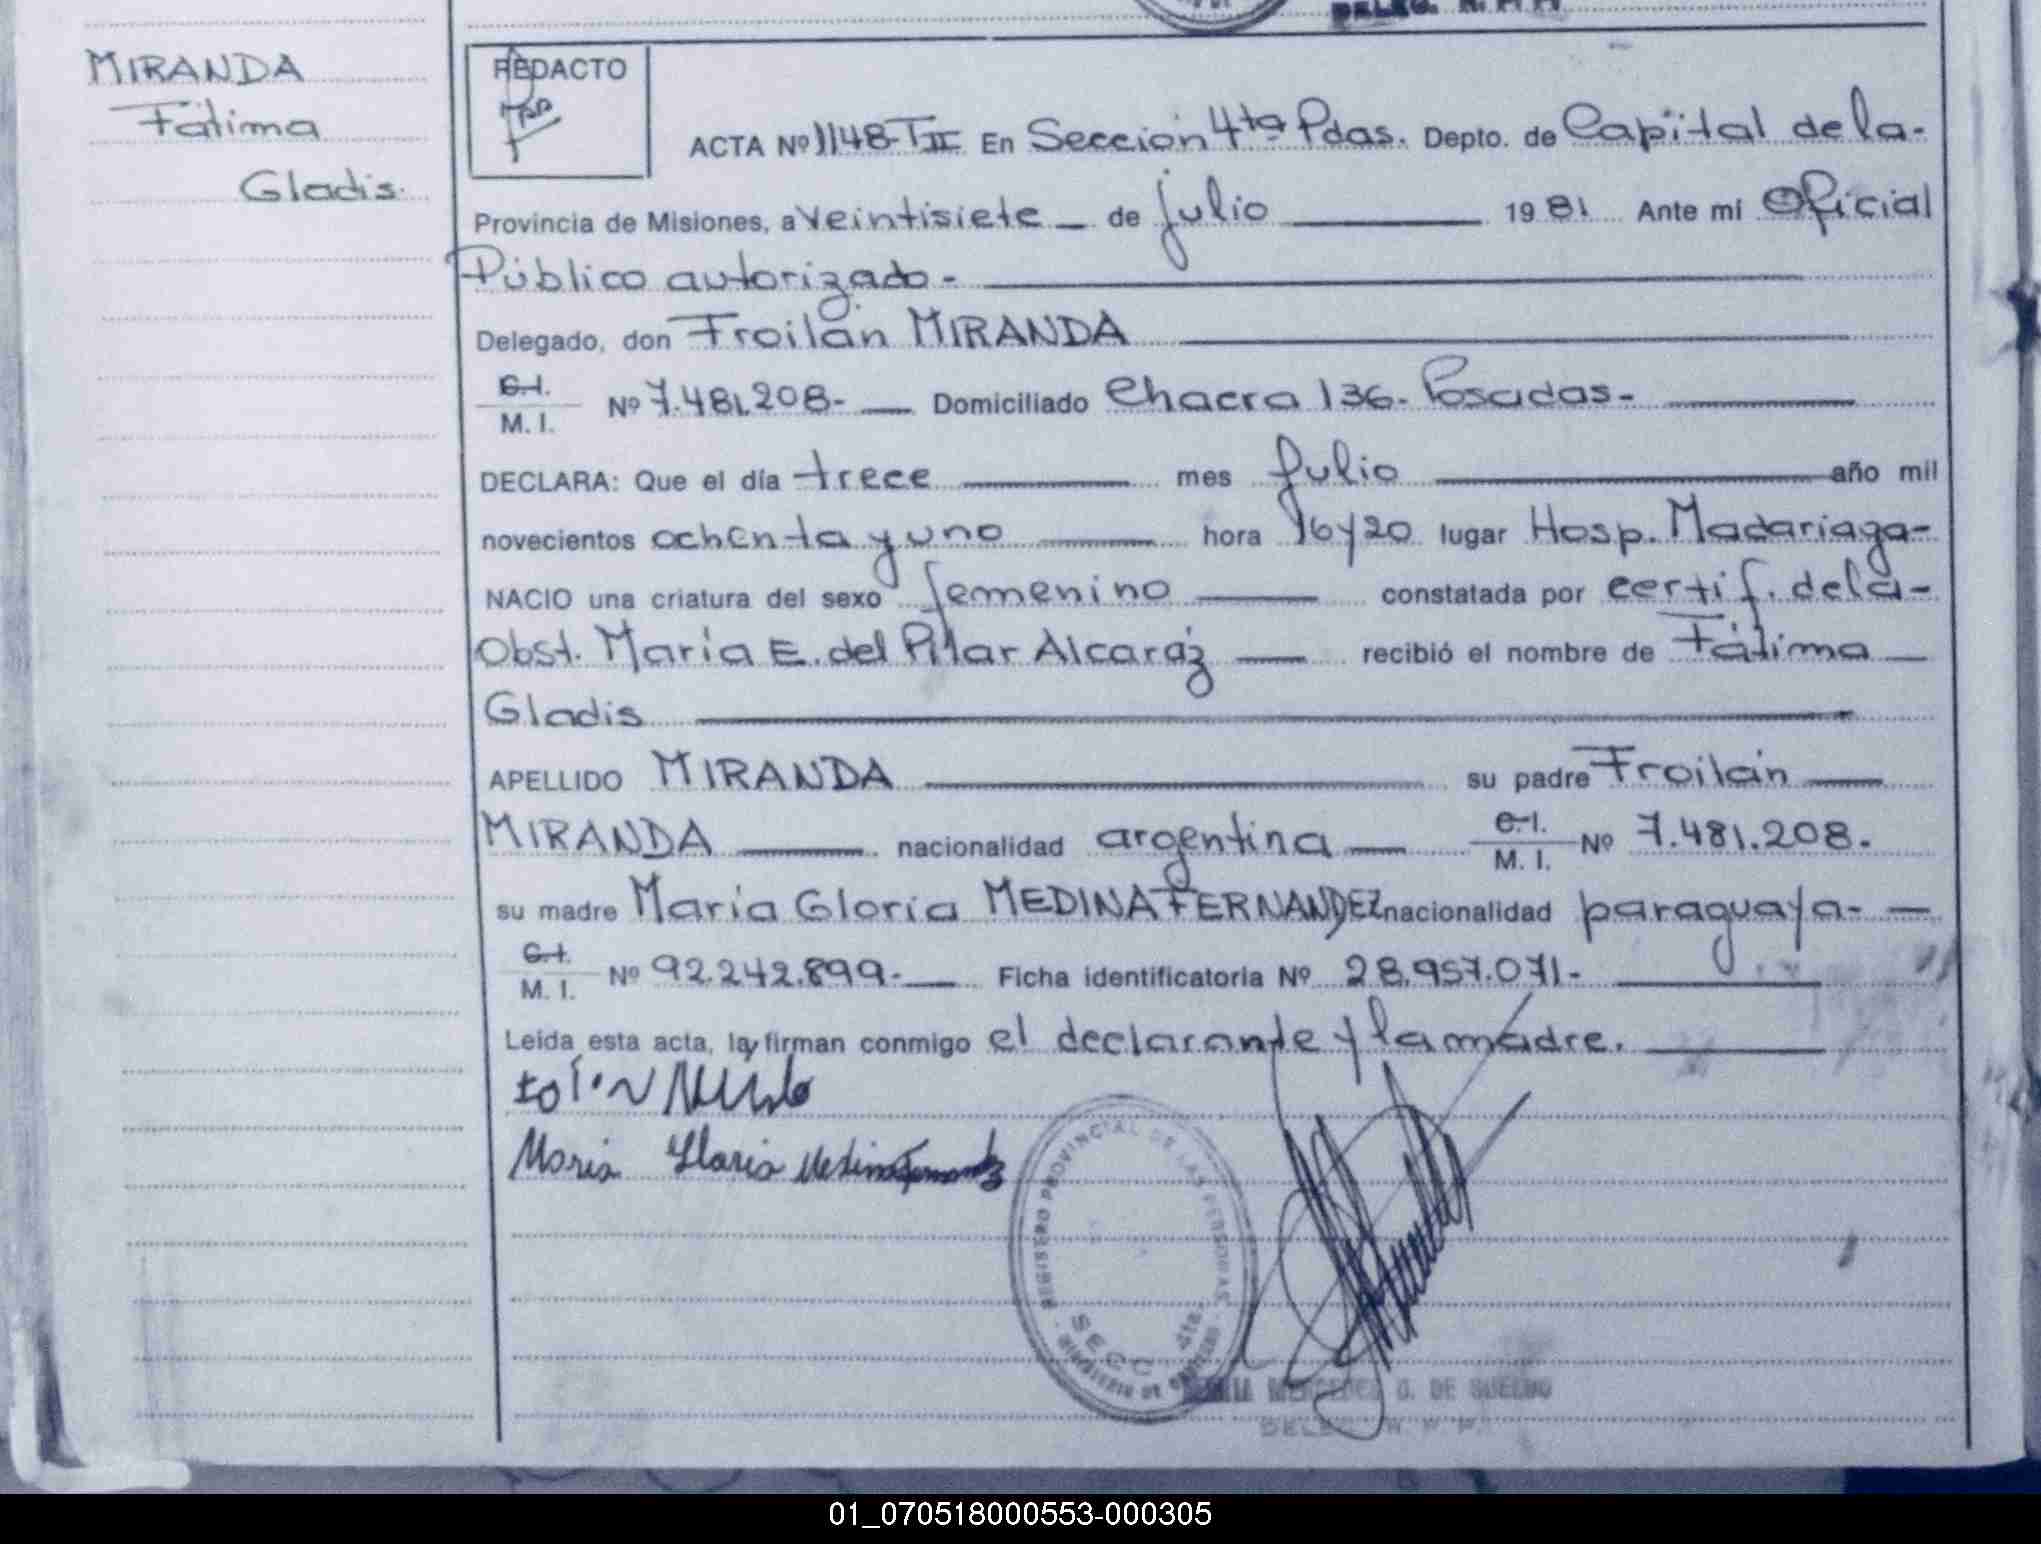 MIRANDA
Fátima
Gladis.
REDACTO
ACTA Nº 1148-TII En Sección 4ta Pdas. Depto. de Capital de la-
Provincia de Misiones, a veintisiete de julio 1981 Ante mí Oficial
Público autorizado-
Delegado, don Froilán MIRANDA
C.I.
M.I. Nº 7.481.208.- Domiciliado Chacra 136- Posadas-
DECLARA: Que el día trece mes Julio año mil
novecientos ochenta y uno hora 16y20 lugar Hosp. Madariaga-
NACIO una criatura del sexo femenino constatada por certif. de la-
Obst. María E. del Pilar Alcaráz recibió el nombre de Fátima
Gladis
APELLIDO MIRANDA su padre Froilán
MIRANDA nacionalidad argentina C.I.
M.I. Nº 7.481.208.
su madre María Gloria MEDINA FERNANDEZ nacionalidad paraguaya-
C.I.
M.I. Nº 92.242.899.- Ficha identificatoria Nº 28.957.071-
Leída esta acta, la firman conmigo el declarante y la madre.
Maria Gloria Medina Fernandez
REGISTRO PROVINCIAL DE LAS PERSONAS
SECC 4ta.
MINISTERIO DE GOBIERNO
MERCEDES G. DE SUELDO
01_070518000553-000305